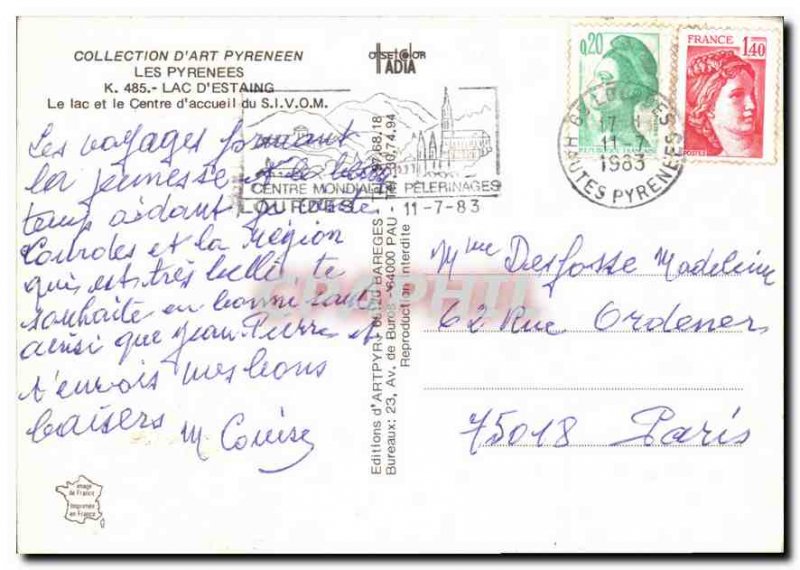 COLLECTION D'ART PYRENEEN
LES PYRENEES
K. 485.- LAC D'ESTAING
Le lac et le Centre d'accueil du S.I.V.O.M.
OffsetColor
TADIA
CENTRE MONDIAL DE PELERINAGES
LOURDES
11-7-83
0,20
FRANCE
1,40
POSTES
LOURDES
17 H
11-7
1983
HAUTES PYRENEES
Les voyages formant
la jeunesse et le beau
temps aidant
Lourdes et la région
qui est très belle te
souhaite en bonne santé
ainsi que Jean Pierre et
t'envois mes bons
baisers M. Louise
Editions d'ARTPYR, 65120 BAREGES
Bureaux: 23, Av. de Buros - 64000 PAU
Reproduction interdite
Mme Desfosse Madeleine
62 Rue Ordener
75018 Paris
CPAPHIL
Image
de France
Imprimée
en France